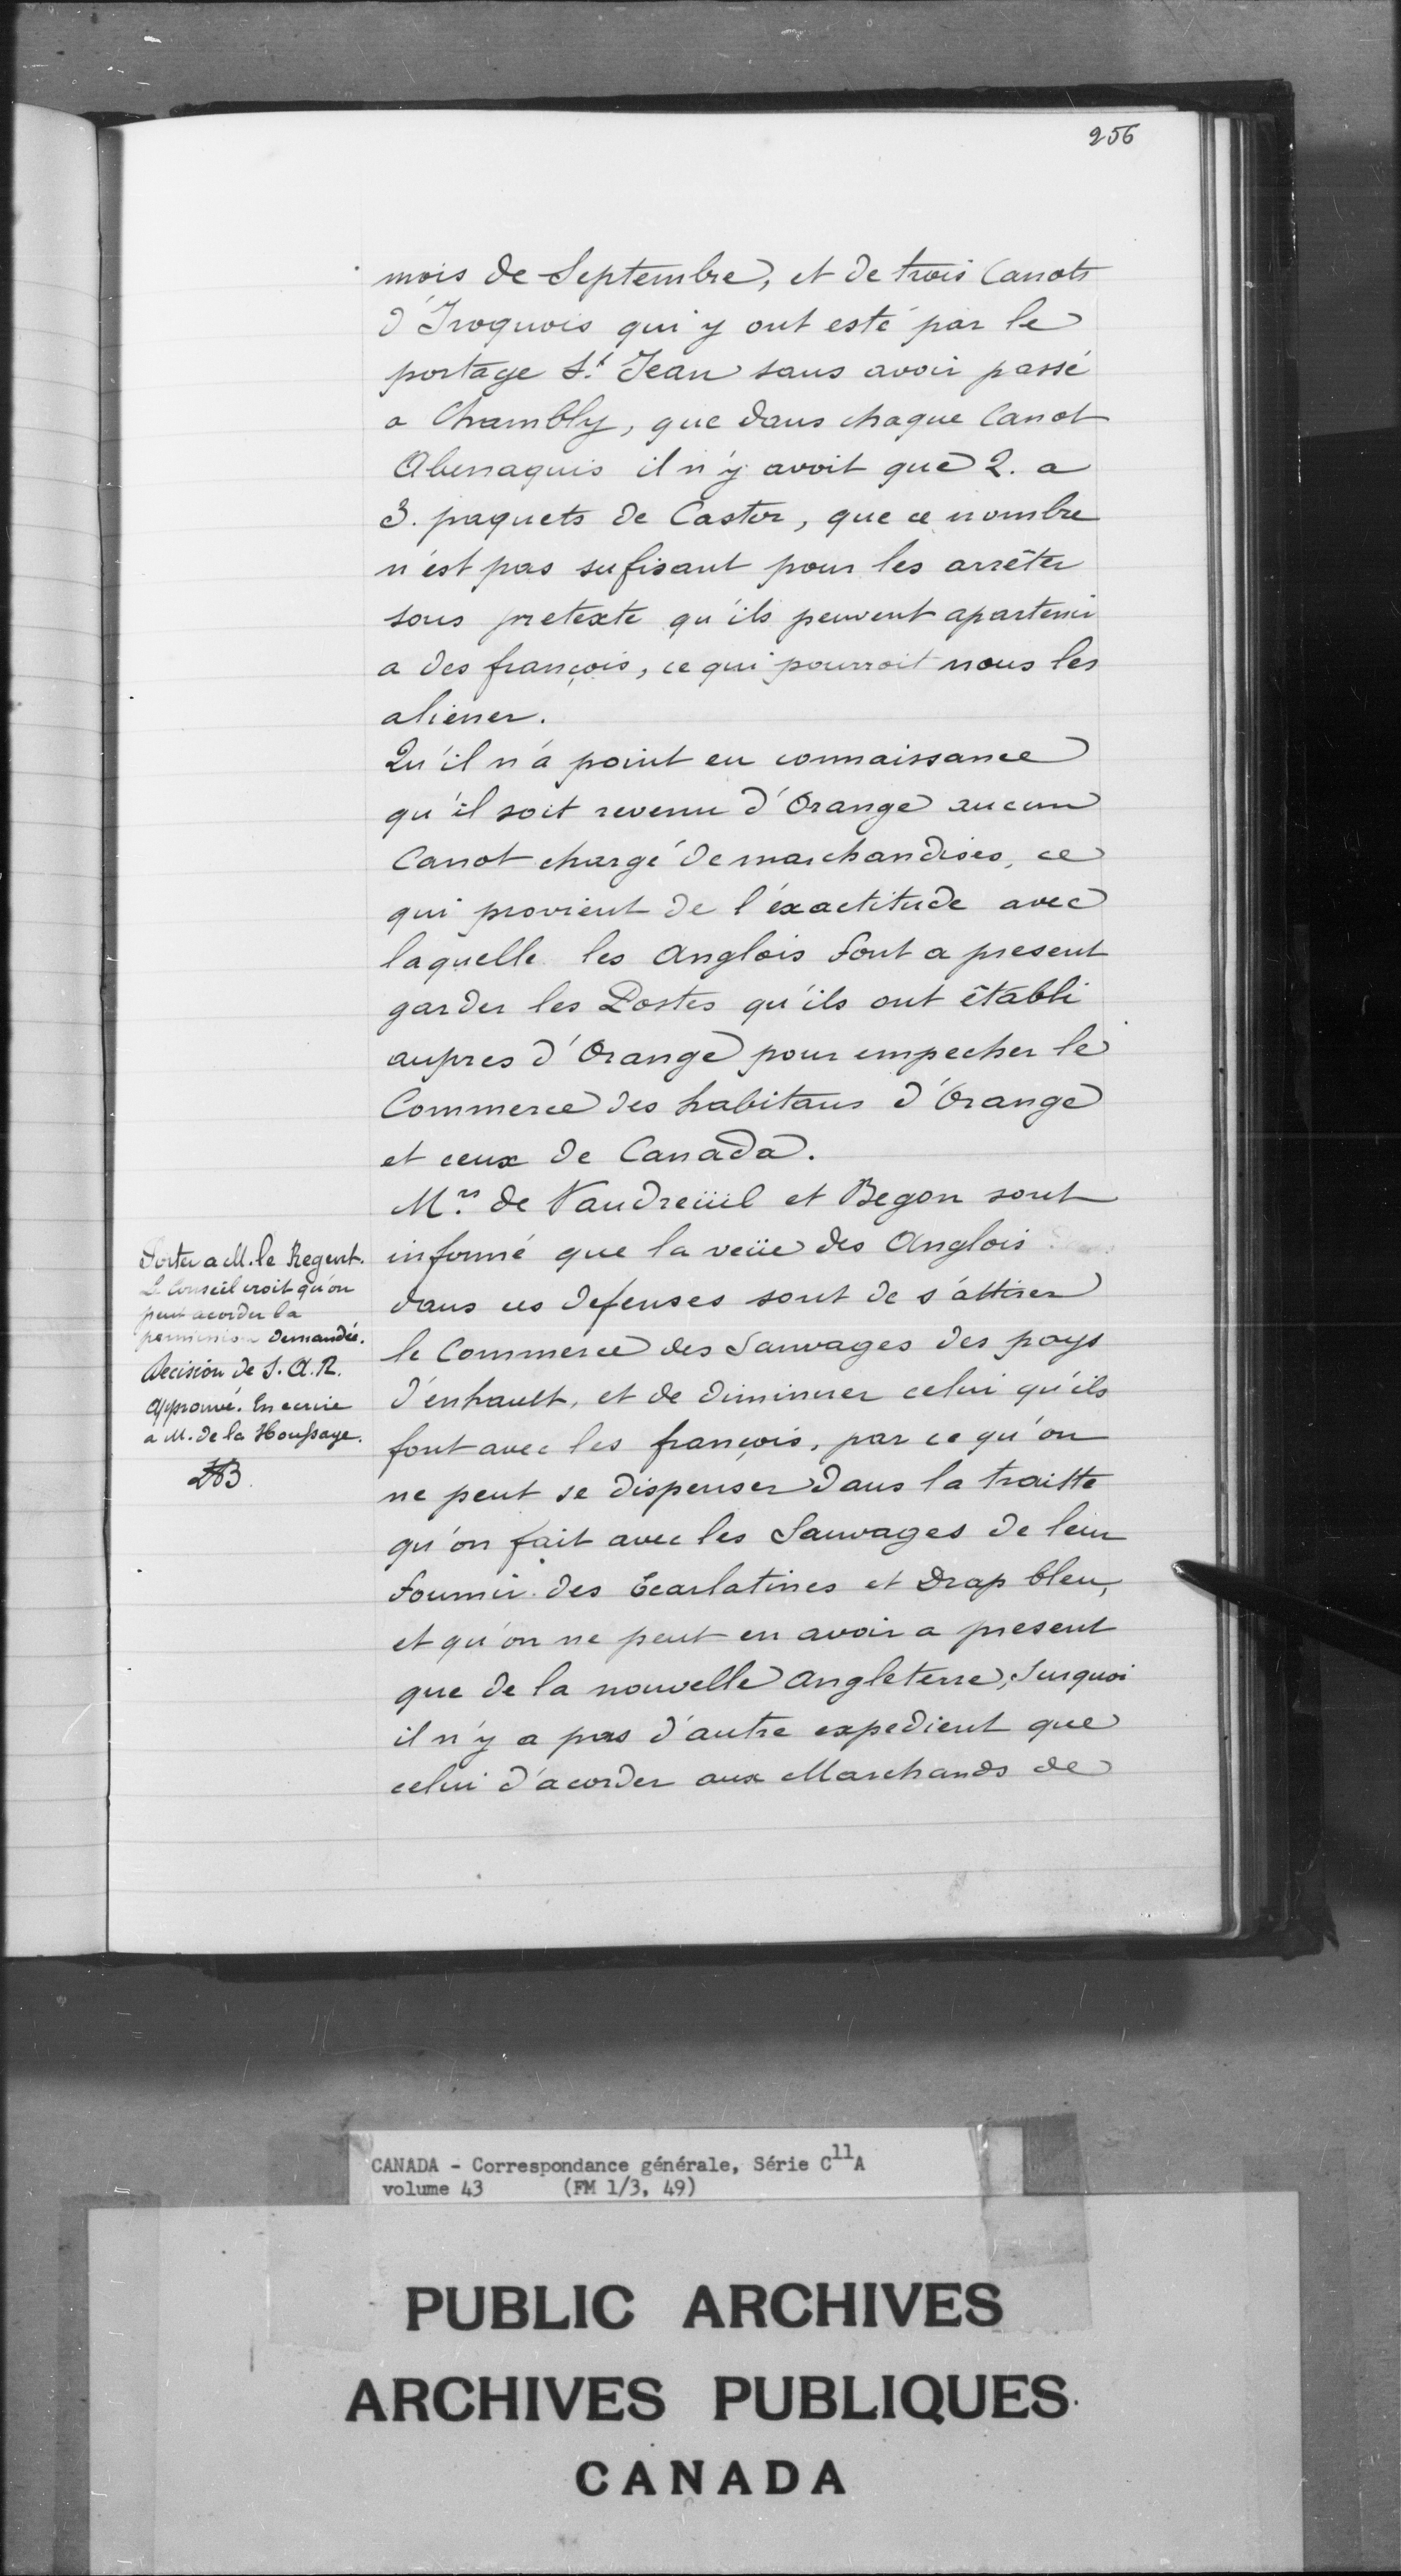 256
mois de Septembre, et de trois Canots
d'Iroquois qui y ont esté par le
portage St. Jean sans avoir passé
a Chambly, que dans chaque Canot
Abenaquis il n'y avoit que 2. a
3. paquets de Castor, que ce nombre
n'est pas sufisant pour les arrêter
sous pretexte qu'ils peuvent apartenir
a des françois, ce qui pourroit nous les
aliener.
Qu'il n'a point eu connaissance
qu'il soit revenu d'Orange aucun
Canot chargé de marchandises, ce
qui provient de l'éxactitude avec
laquelle les Anglois font a present
garder les Postes qu'ils ont établi
aupres d'Orange pour empecher le
Commerce des habitans d'Orange
et ceux de Canada.
Mrs. de Vaudreüil et Begon sont
informé que la veüe des Anglois
dans ces defenses sont de s'attirer
le Commerce des Sauvages des pays
d'enhault, et de diminuer celui qu'ils
font avec les françois, par ce qu'on
ne peut se dispenser dans la traitte
qu'on fait avec les Sauvages de leur
fournir des Ecarlatines et Drap bleu,
et qu'on ne peut en avoir a present
que de la nouvelle Angleterre, Surquoi
il n'y a pas d'autre expedient que
celui d'acorder aux Marchands de
Porter a M. le Regent.
Le Conseil croit qu'on
peut acorder la
permission demandée.
Decision de S. A. R.
Approuvé. En ecrire
a M. de la Houssaye.
CANADA - Correspondance générale, Série C11A
volume 43 (FM 1/3, 49)
PUBLIC ARCHIVES
ARCHIVES PUBLIQUES
CANADA